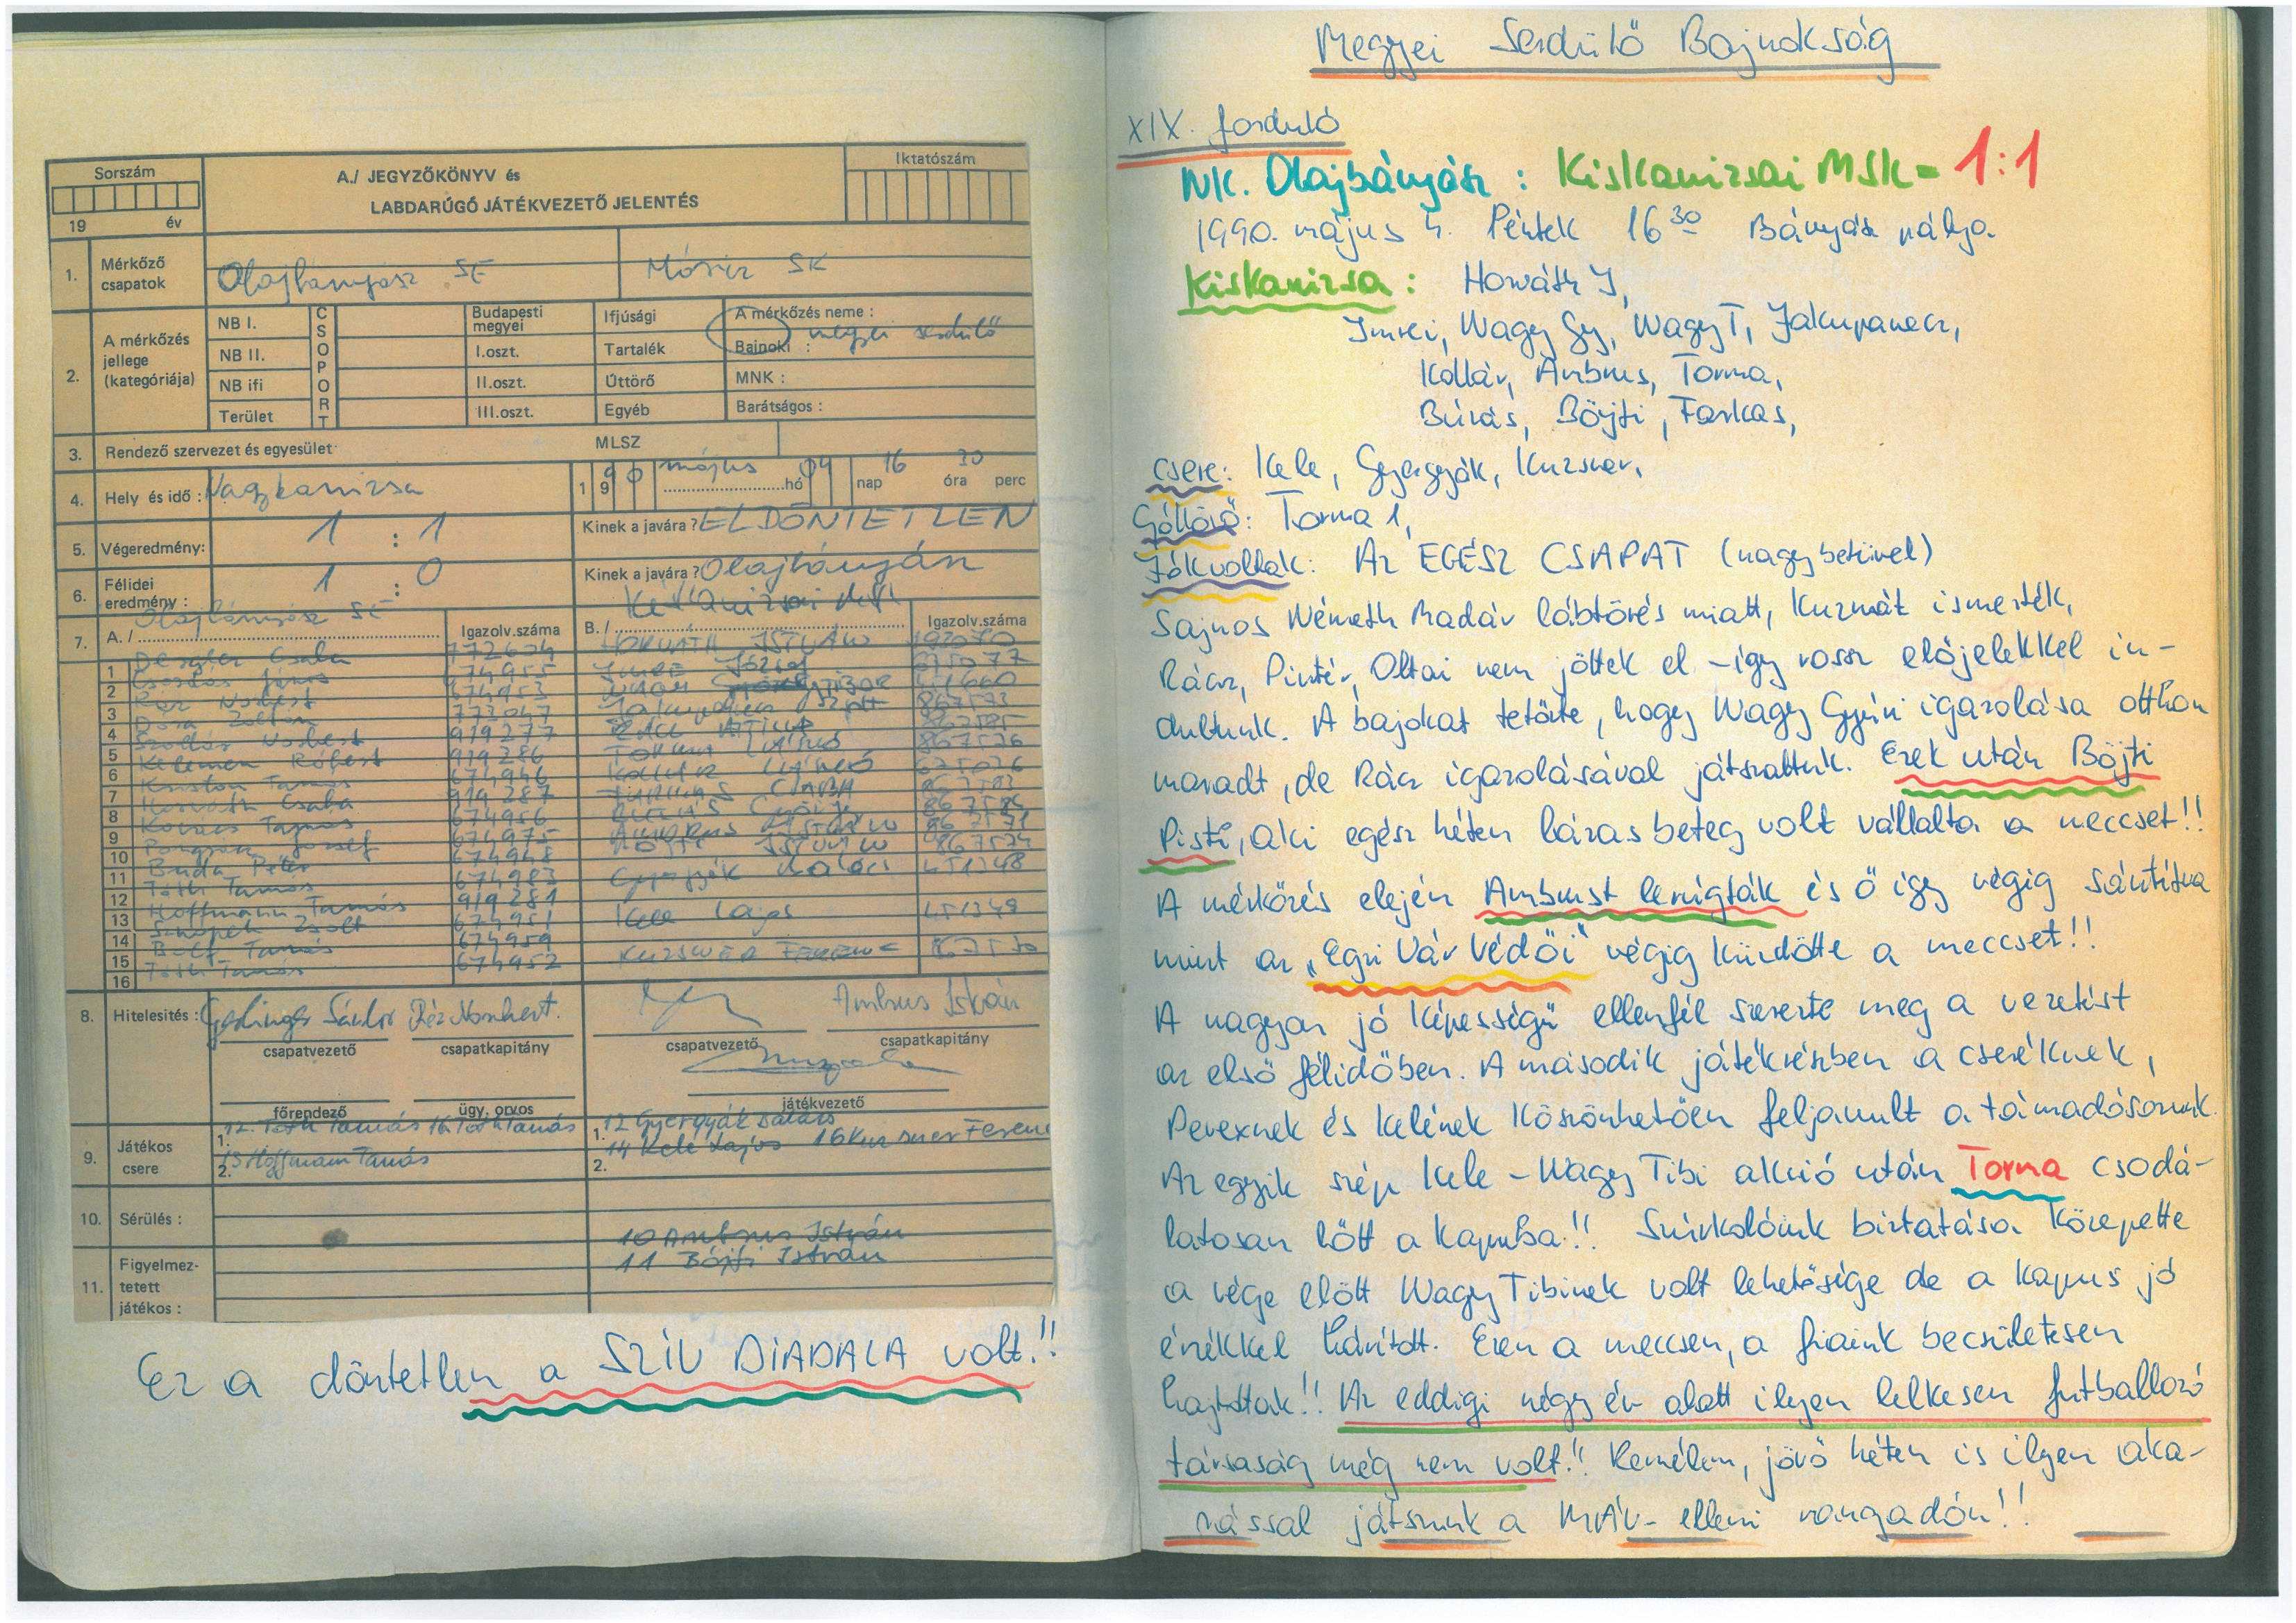 Sorszám
19 év
A./ JEGYZŐKÖNYV és
LABDARÚGÓ JÁTÉKVEZETŐ JELENTÉS
Iktatószám
1. Mérkőző csapatok
Olajbányász SE
Móricz SK
2. A mérkőzés jellege (kategóriája)
NB I.
NB II.
NB ifi
Terület
CSOPORT
Budapesti megyei
I.oszt.
II.oszt.
III.oszt.
Ifjúsági
Tartalék
Úttörő
Egyéb
A mérkőzés neme :
megyei serdülő
Bajnoki :
MNK :
Barátságos :
3. Rendező szervezet és egyesület
MLSZ
4. Hely és idő : Nagykanizsa
1990 május hó 04 nap 16 óra 30 perc
5. Végeredmény: 1 : 1
Kinek a javára ? ELDÖNTETLEN
6. Félidei eredmény : 1 : 0
Kinek a javára ? Olajbányász
7. A./ Olajbányász SE
Igazolv.száma
B./
Igazolv.száma
HORVÁTH ISTVÁN
1 Csaba
2 János 674953
3 Norbert
4 Dósa Zoltán 919277
5 Norbert 919286
6 Kelemen Róbert 674946
7 Tamás 919287
8 Horváth Csaba 674956
9 Kovács Tamás 674975
10 József 674948
11 Buda Péter 674983
12 Tóth Tamás 919281
13 Hoffmann Tamás 674951
14 Zsolt 674959
15 Tamás 674952
16 Tóth Tamás
Imre József
Kele Lajos
8. Hitelesítés :
Sándor
Ambrus István
csapatvezető
csapatkapitány
csapatvezető
csapatkapitány
főrendező
ügy. orvos
játékvezető
9. Játékos csere
1. 12 Tóth Tamás 16 Tóth Tamás
2. 13 Hoffmann Tamás
1. 12 Gyergyák Balázs
2. 14 Kele Lajos 16 Kurzner Ferenc
10. Sérülés :
10 Ambrus István
11 Böjti István
11. Figyelmeztetett játékos :
Ez a döntetlen a SZÍV DIADALA volt!!
Megyei Serdülő Bajnokság
XIX. forduló
NK. Olajbányász : Kiskanizsai MSK = 1:1
1990. május 4. Péntek 16 30 Bányász pálya
Kiskanizsa : Horváth I,
Imrei, Wagy Gy, Wagy T, Jakupanecz,
Kollár, Ambrus, Torma,
Búvás, Böjti, Farkas,
Csere: Kele, Gyergyák, Kurzner,
Góllövő: Torma 1,
Jók voltak: Az EGÉSZ CSAPAT (nagybetűvel)
Sajnos Németh Madár lábtörés miatt, Kuzmát ismerték,
Rácz, Pintér, Oltai nem jöttek el - így rossz előjelekkel in-
dultunk. A bajokat tetőzte, hogy Wagy Gyuri igazolása otthon
maradt, de Rácz igazolásával játszattuk. Ezek után Böjti
Pisti, aki egész héten lázas beteg volt vállalta a meccset!!
A mérkőzés elején Ambrust lerúgták és ő így végig sántítva
mint az „Egri Vár Védői" végig küzdötte a meccset!!
A nagyon jó képességű ellenfél szerezte meg a vezetést
az első félidőben. A második játékrészben a cseréknek,
Perexnek és Kelének köszönhetően feljavult a támadósorunk.
Az egyik szép Kele - Wagy Tibi akció után Torma csodá-
latosan lőtt a kapuba!! Szurkolóink biztatása közepette
a vége előtt Wagy Tibinek volt lehetősége de a kapus jó
érzékkel hárított. Ezen a meccsen, a fiaink becsületesen
hajtottak!! Az eddigi négy év alatt ilyen lelkesen futballozó
társaság még nem volt!! Remélem, jövő héten is ilyen aka-
rással játszunk a MÁV- elleni rangadón!!